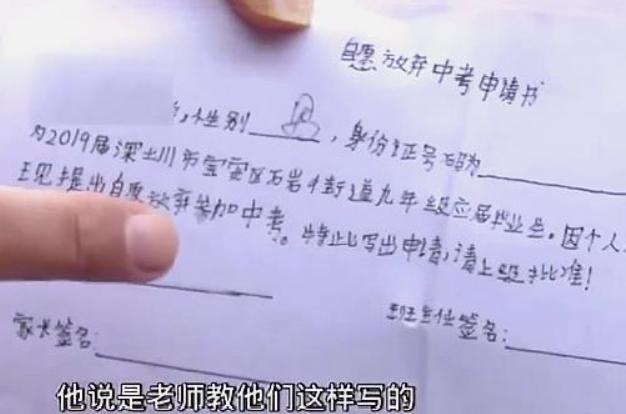 自愿放弃中考申请书
,性别 男 ,身份证号码为
为2019届深圳市宝安区石岩街道九年级应届毕业生。因个人
现提出自愿放弃参加中考。特此写出申请,请上级批准!
班主任签名:
家长签名:
他说是老师教他们这样写的